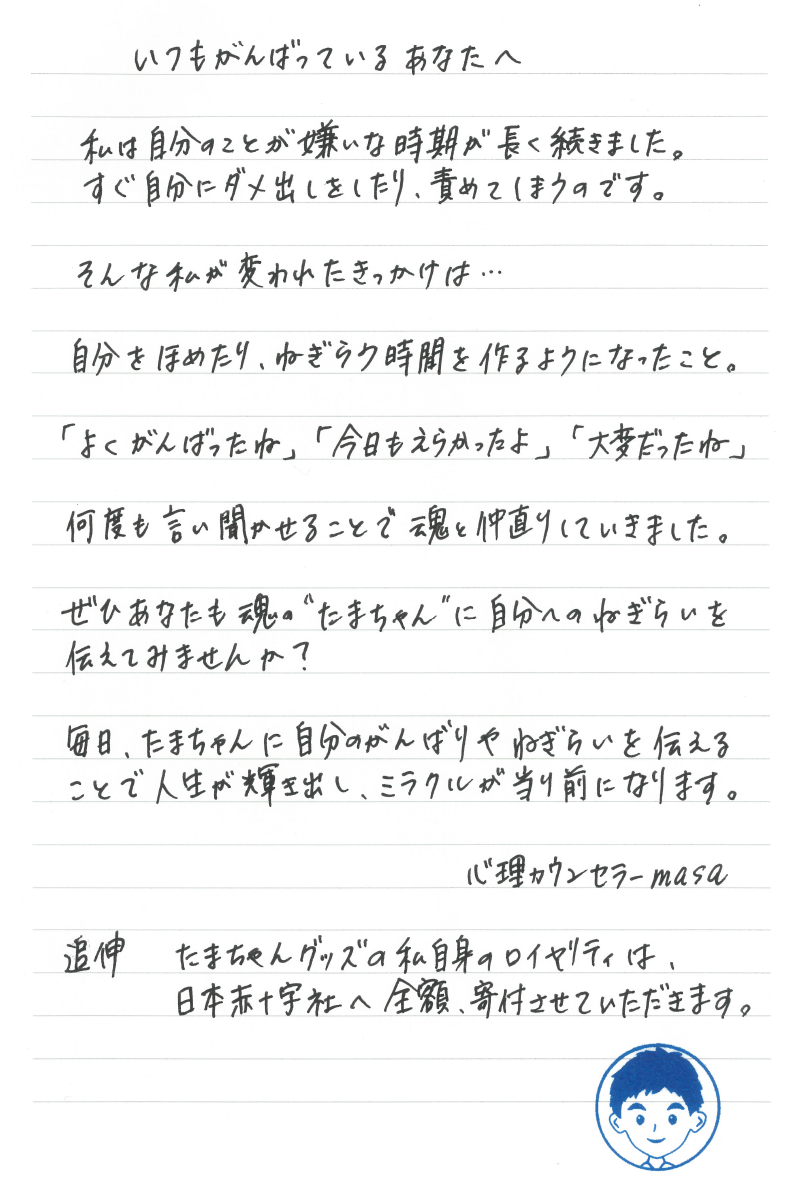 いつもがんばっているあなたへ
私は自分のことが嫌いな時期が長く続きました。
すぐ自分にダメ出しをしたり、責めてしまうのです。
そんな私が変われたきっかけは…
自分をほめたり、ねぎらう時間を作るようになったこと。
「よくがんばったね」「今日もえらかったよ」「大変だったね」
何度も言い聞かせることで魂と仲直りしていきました。
ぜひあなたも魂の“たまちゃん”に自分へのねぎらいを
伝えてみませんか？
毎日、たまちゃんに自分のがんばりやねぎらいを伝える
ことで人生が輝き出し、ミラクルが当り前になります。
心理カウンセラーmasa
追伸　たまちゃんグッズの私自身のロイヤリティは、
日本赤十字社へ全額、寄付させていただきます。